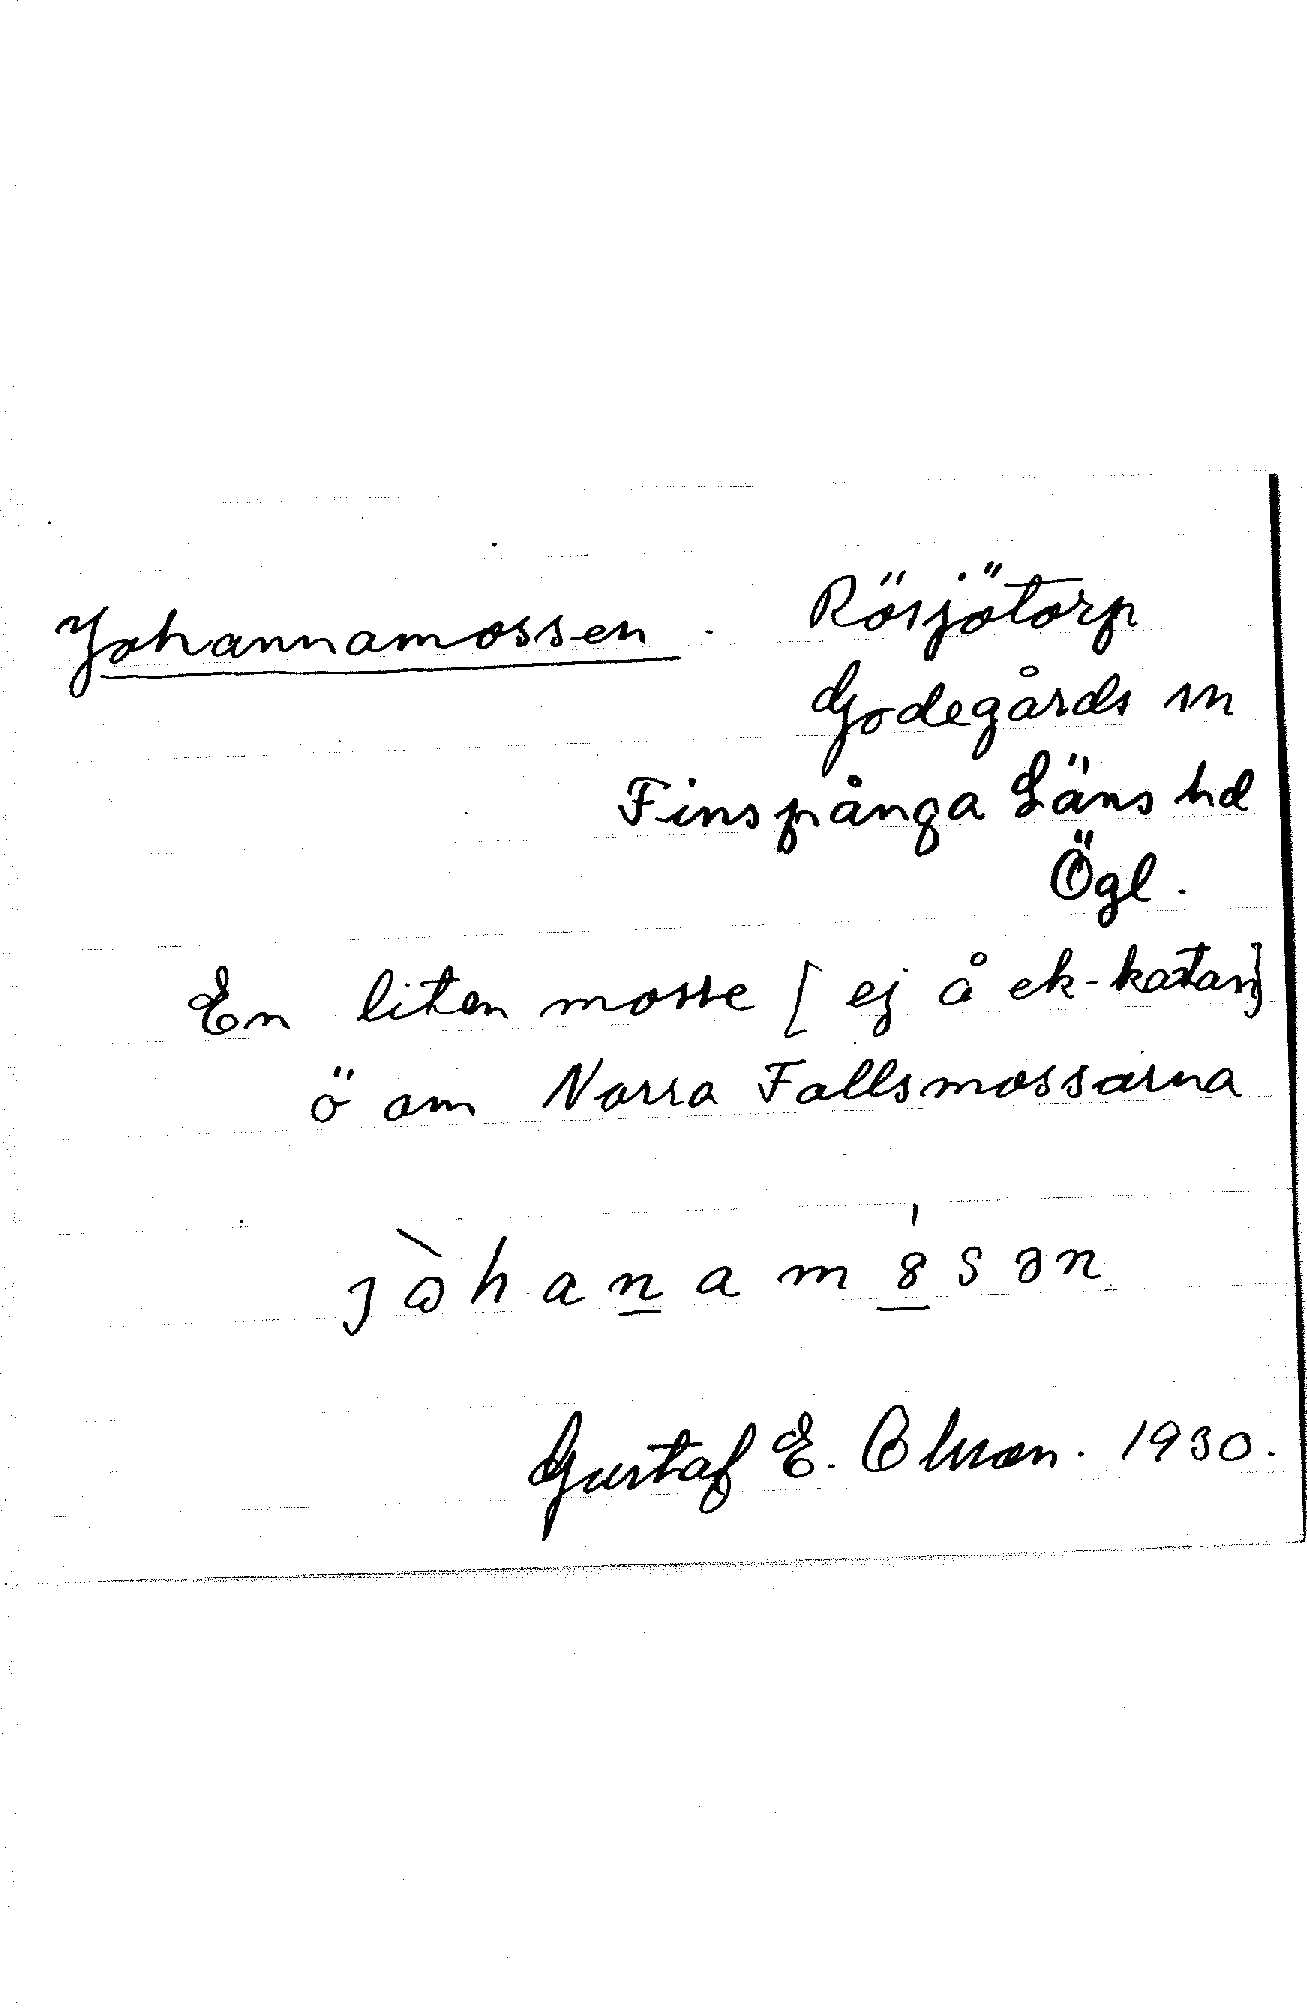 Johannamossen. Rösjötorp
Godegårds sn
Finspånga Läns hd
Ögl.
En liten mosse [ej å ek-kartan]
ö om Norra Fallsmossarna
Gustaf E. Olsson. 1930.